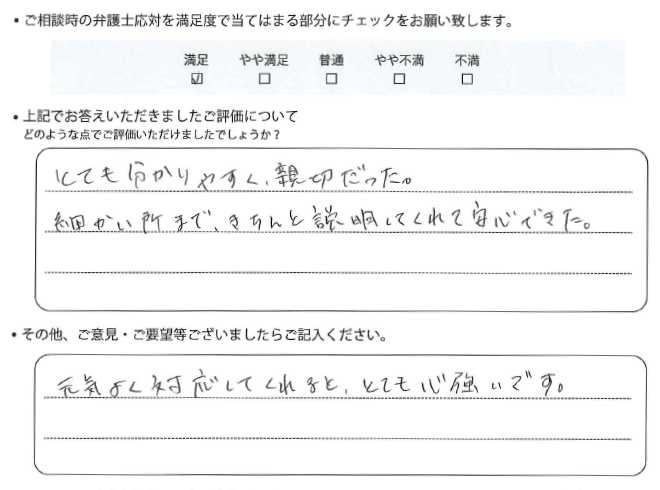 • ご相談時の弁護士応対を満足度で当てはまる部分にチェックをお願い致します。
満足 やや満足 普通 やや不満 不満
☑ ☐ ☐ ☐ ☐
• 上記でお答えいただきましたご評価について
どのような点でご評価いただけましたでしょうか？
とても分かりやすく、親切だった。
細かい所まで、きちんと説明してくれて安心できた。
• その他、ご意見・ご要望等ございましたらご記入ください。
元気よく対応してくれると、とても心強いです。